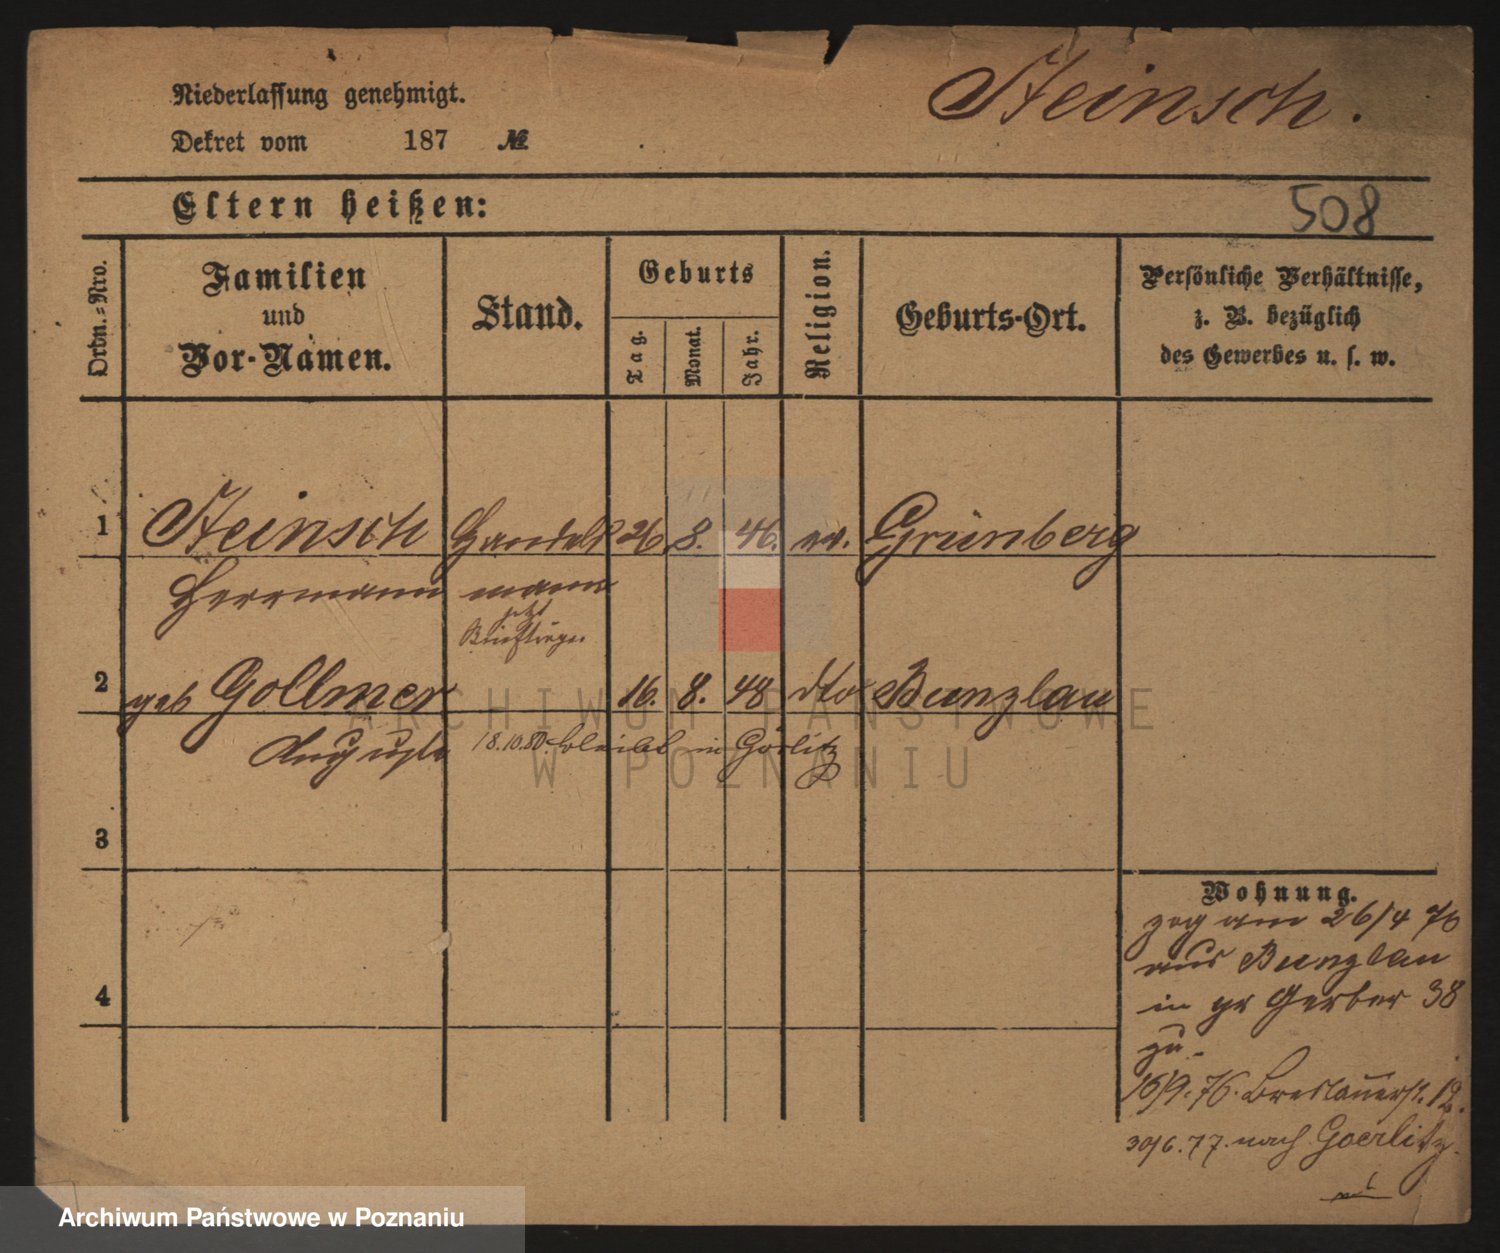 Niederlassung genehmigt.
Steinsch.
Dekret vom 187 №
Eltern heißen:
508
Ordn.-Nro.
Familien und Vor-Namen.
Stand.
Geburts
Tag.
Monat.
Jahr.
Religion.
Geburts-Ort.
Persönliche Verhältnisse,
z. B. bezüglich
des Gewerbes u. s. w.
1 Steinsch Handels 26. 8. 46. ev. Grünberg
Herrmann mann
jetzt
Briefträger
2 geb Gollmer 16. 8. 48 dto Bunzlau
Auguste 18.10.80. bleibt in Görlitz
3
4
Wohnung.
zog am 26/4 76
aus Bunzlau
in gr Gerber 38
zu.
16/9. 76. Breslauerst. 12.
30/6. 77. nach Goerlitz.
ARCHIWUM PAŃSTWOWE
W POZNANIU
Archiwum Państwowe w Poznaniu